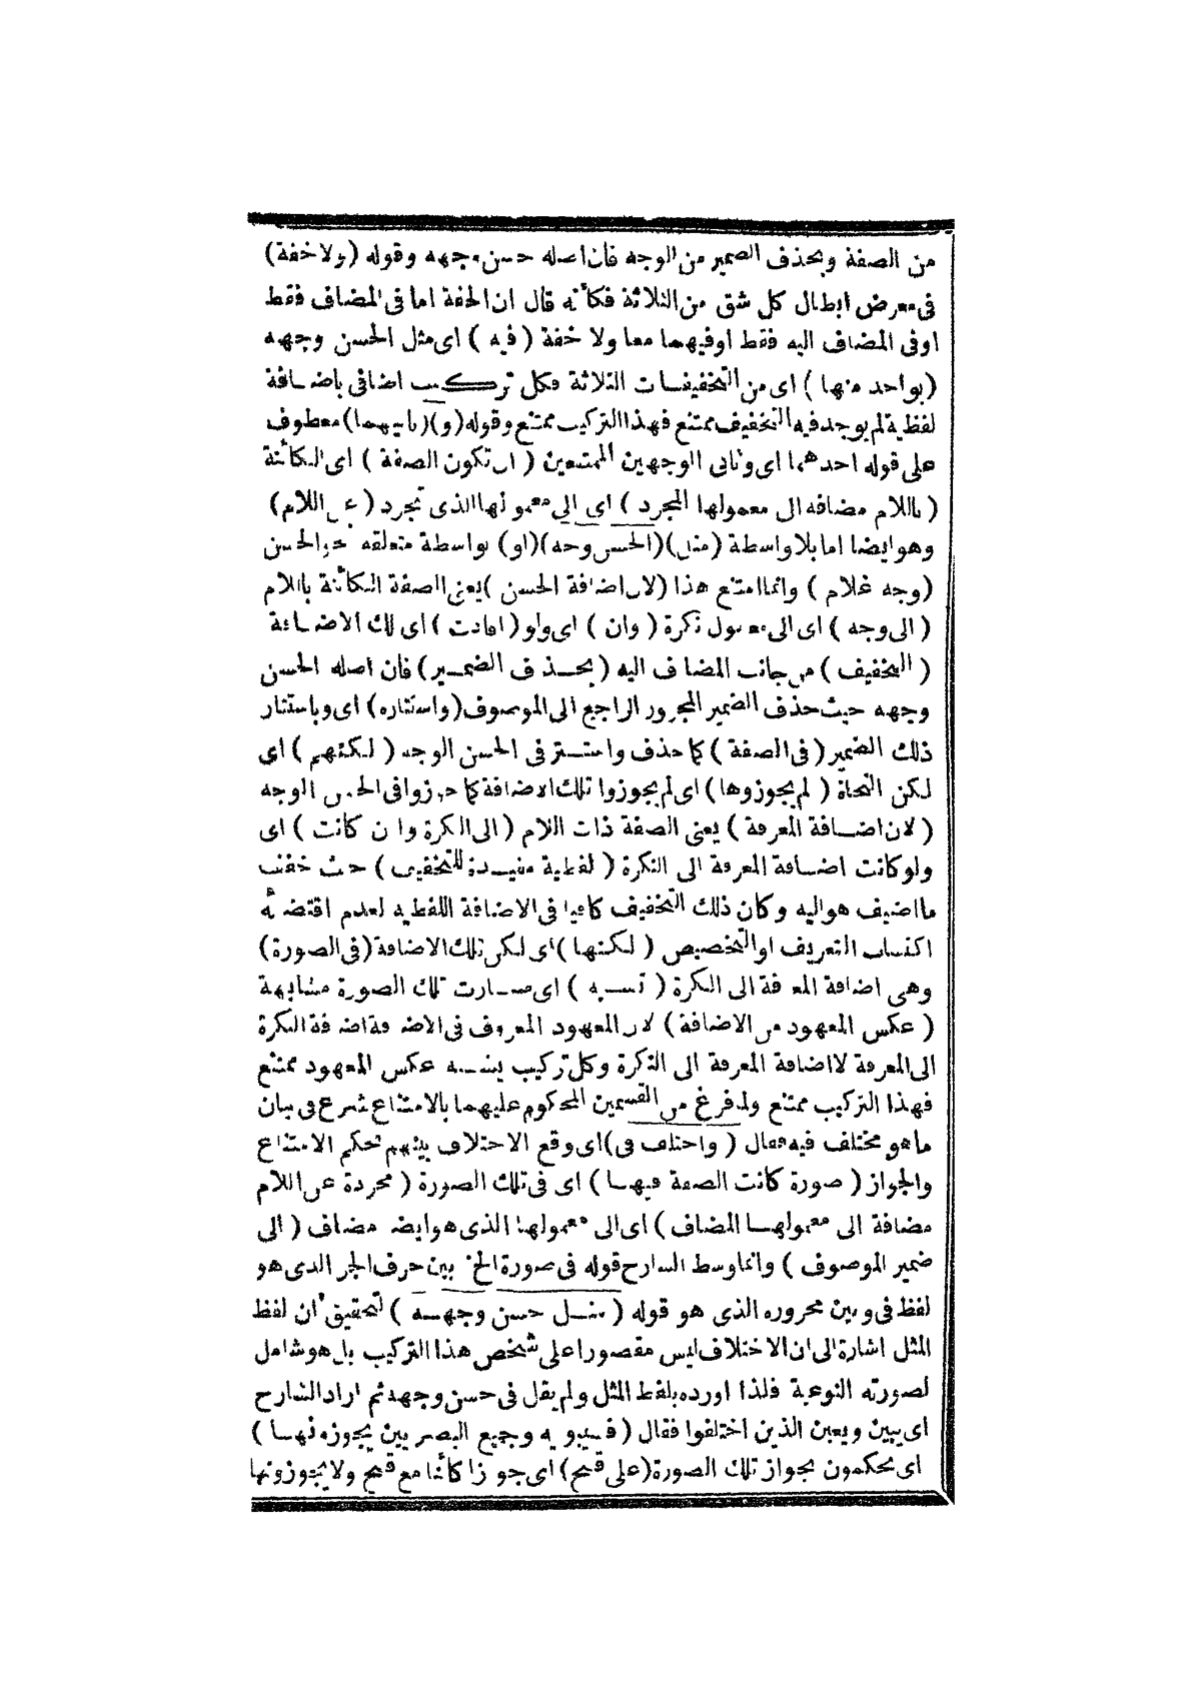 من الصفة وبحذف الضمير من الوجه فان اصله حسن وجهه وقوله (ولا خفة)
فى معرض ابطال كل شق من الثلاثة فكأنه قال ان الخفة اما فى المضاف فقط
اوفى المضاف اليه فقط اوفيهما معا ولا خفة (فيه) اى مثل الحسن وجهه
(بواحد منها) اى من التخفيفات الثلاثة فكل تركيب اضافى باضافة
لفظية لم يوجد فيه التخفيف ممتنع فهذا التركيب ممتنع وقوله (و) (ثانيهما) معطوف
على قوله احدهما اى وثانى الوجهين الممتنعين (ان تكون الصفة) اى الكائنة
(باللام مضافة الى معمولها المجرد) اى الى معمولها الذى تجرد (عن اللام)
وهو ايضا اما بلا واسطة (مثل) (الحسن وجه) (او) بواسطة متعلقه نحو الحسن
(وجه غلام) وانما امتنع هذا (لان اضافة الحسن) يعنى الصفة الكائنة باللام
(الى وجه) اى الى معمول نكرة (وان) اى ولو (افادت) اى تلك الاضافة
(التخفيف) من جانب المضاف اليه (بحذف الضمير) فان اصله الحسن
وجهه حيث حذف الضمير المجرور الراجع الى الموصوف (واستتاره) اى وباستتار
ذلك الضمير (فى الصفة) كما حذف واستتر فى الحسن الوجه (لكنهم) اى
لكن النحاة (لم يجوزوها) اى لم يجوزوا تلك الاضافة كما جوزوا فى الحسن الوجه
(لان اضافة المعرفة) يعنى الصفة ذات اللام (الى النكرة وان كانت) اى
ولو كانت اضافة المعرفة الى النكرة (لفظية مفيدة للتخفيف) حيث خففت
ما اضيف هو اليه وكان ذلك التخفيف كافيا فى الاضافة اللفظيه لعدم اقتضائه
اكتساب التعريف او التخصيص (لكنها) اى لكن تلك الاضافة (فى الصورة)
وهى اضافة المعرفة الى النكرة (تشبه) اى صارت تلك الصورة مشابهة
(عكس المعهود من الاضافة) لان المعهود المعروف فى الاضافة اضافة النكرة
الى المعرفة لا اضافة المعرفة الى النكرة وكل تركيب يشبه عكس المعهود ممتنع
فهذا التركيب ممتنع ولما فرغ من القسمين المحكوم عليهما بالامتناع شرع فى بيان
ما هو مختلف فيه فقال (واختلف فى) اى وقع الاختلاف بينهم بحكم الامتناع
والجواز (صورة كانت الصفة فيها) اى فى تلك الصورة (مجردة عن اللام
مضافة الى معمولها المضاف) اى الى معمولها الذى هو ايضا مضاف (الى
ضمير الموصوف) وانما وسط الشارح قوله فى صورة الخ بين حرف الجر الذى هو
لفظ فى وبين مجروره الذى هو قوله (مثل حسن وجهه) لتحقيق ان لفظ
المثل اشارة الى ان الاختلاف ليس مقصورا على شخص هذا التركيب بل هو شامل
لصورته النوعية فلذا اورده بلفظ المثل ولم يقل فى حسن وجهه ثم اراد الشارح
اى يبين ويعين الذين اختلفوا فقال (فسيبويه وجميع البصريين يجوزونها)
اى يحكمون بجواز تلك الصورة (على قبح) اى جوازا كائنا مع قبح ولا يجوزونها